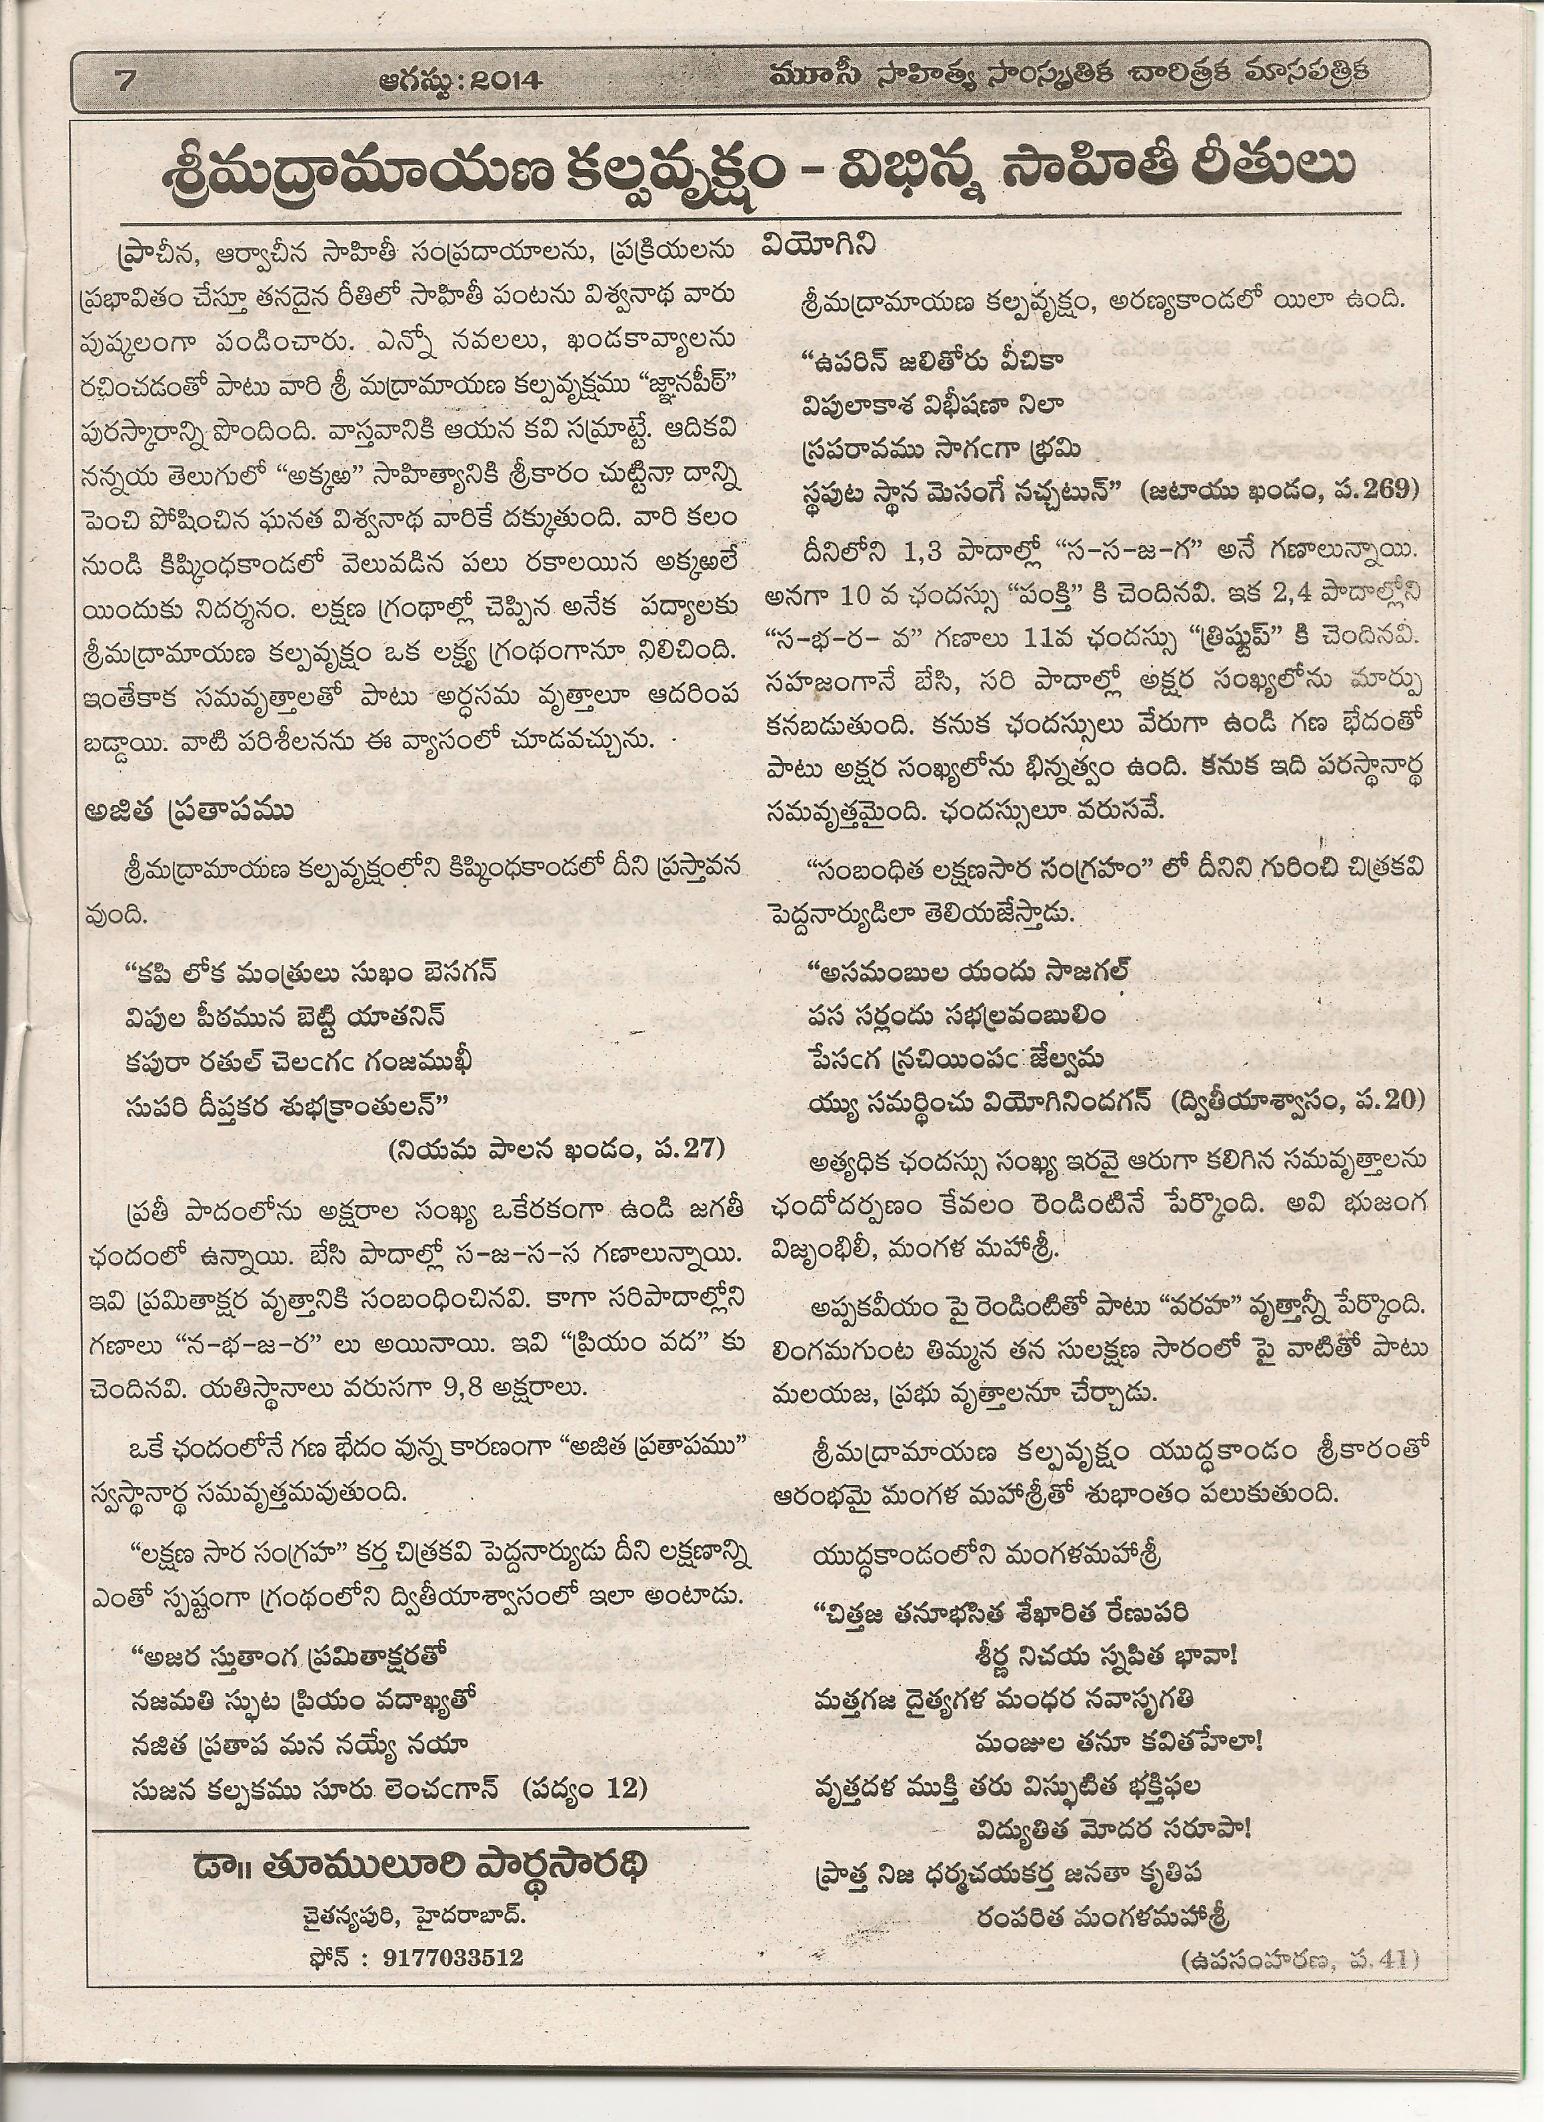 7 ఆగస్టు:2014 మూసీ సాహిత్య సాంస్కృతిక చారిత్రక మాసపత్రిక
శ్రీమద్రామాయణ కల్పవృక్షం - విభిన్న సాహితీ రీతులు
ప్రాచీన, ఆర్వాచీన సాహితీ సంప్రదాయాలను, ప్రక్రియలను
ప్రభావితం చేస్తూ తనదైన రీతిలో సాహితీ పంటను విశ్వనాథ వారు
పుష్కలంగా పండించారు. ఎన్నో నవలలు, ఖండకావ్యాలను
రచించడంతో పాటు వారి శ్రీ మద్రామాయణ కల్పవృక్షము “జ్ఞానపీఠ్”
పురస్కారాన్ని పొందింది. వాస్తవానికి ఆయన కవి సమ్రాట్టే. ఆదికవి
నన్నయ తెలుగులో “అక్కఱ” సాహిత్యానికి శ్రీకారం చుట్టినా దాన్ని
పెంచి పోషించిన ఘనత విశ్వనాథ వారికే దక్కుతుంది. వారి కలం
నుండి కిష్కింధకాండలో వెలువడిన పలు రకాలయిన అక్కఱలే
యిందుకు నిదర్శనం. లక్షణ గ్రంథాల్లో చెప్పిన అనేక పద్యాలకు
శ్రీమద్రామాయణ కల్పవృక్షం ఒక లక్ష్య గ్రంథంగానూ నిలిచింది.
ఇంతేకాక సమవృత్తాలతో పాటు అర్ధసమ వృత్తాలూ ఆదరింప
బడ్డాయి. వాటి పరిశీలనను ఈ వ్యాసంలో చూడవచ్చును.
అజిత ప్రతాపము
శ్రీమద్రామాయణ కల్పవృక్షంలోని కిష్కింధకాండలో దీని ప్రస్తావన
వుంది.
“కపి లోక మంత్రులు సుఖం బెసగన్
విపుల పీఠమున బెట్టి యాతనిన్
కపురా రతుల్ చెలఁగఁ గంజముఖీ
సుపరి దీప్తకర శుభక్రాంతులన్”
(నియమ పాలన ఖండం, ప.27)
ప్రతీ పాదంలోను అక్షరాల సంఖ్య ఒకేరకంగా ఉండి జగతీ
ఛందంలో ఉన్నాయి. బేసి పాదాల్లో స-జ-స-స గణాలున్నాయి.
ఇవి ప్రమితాక్షర వృత్తానికి సంబంధించినవి. కాగా సరిపాదాల్లోని
గణాలు “న-భ-జ-ర” లు అయినాయి. ఇవి “ప్రియం వద” కు
చెందినవి. యతిస్థానాలు వరుసగా 9,8 అక్షరాలు.
ఒకే ఛందంలోనే గణ భేదం వున్న కారణంగా “అజిత ప్రతాపము”
స్వస్థానార్థ సమవృత్తమవుతుంది.
“లక్షణ సార సంగ్రహ” కర్త చిత్రకవి పెద్దనార్యుడు దీని లక్షణాన్ని
ఎంతో స్పష్టంగా గ్రంథంలోని ద్వితీయాశ్వాసంలో ఇలా అంటాడు.
“అజర స్తుతాంగ ప్రమితాక్షరతో
నజమతి స్ఫుట ప్రియం వదాఖ్యతో
నజిత ప్రతాప మన నయ్యే నయా
సుజన కల్పకము సూరు లెంచఁగాన్ (పద్యం 12)
డా॥ తూములూరి పార్థసారథి
చైతన్యపురి, హైదరాబాద్.
ఫోన్ : 9177033512
వియోగిని
శ్రీమద్రామాయణ కల్పవృక్షం, అరణ్యకాండలో యిలా ఉంది.
“ఉపరిన్ జలితోరు వీచికా
విపులాకాశ విభీషణా నిలా
స్రపరావము సాగఁగా భ్రమి
స్థపుట స్థాన మెసంగే నచ్చటున్” (జటాయు ఖండం, ప.269)
దీనిలోని 1,3 పాదాల్లో “స-స-జ-గ” అనే గణాలున్నాయి.
అనగా 10 వ ఛందస్సు “పంక్తి” కి చెందినవి. ఇక 2,4 పాదాల్లోని
“స-భ-ర- వ” గణాలు 11వ ఛందస్సు “త్రిష్టుప్” కి చెందినవి.
సహజంగానే బేసి, సరి పాదాల్లో అక్షర సంఖ్యలోను మార్పు
కనబడుతుంది. కనుక ఛందస్సులు వేరుగా ఉండి గణ భేదంతో
పాటు అక్షర సంఖ్యలోను భిన్నత్వం ఉంది. కనుక ఇది పరస్థానార్థ
సమవృత్తమైంది. ఛందస్సులూ వరుసవే.
“సంబంధిత లక్షణసార సంగ్రహం” లో దీనిని గురించి చిత్రకవి
పెద్దనార్యుడిలా తెలియజేస్తాడు.
“అసమంబుల యందు సాజగల్
పస సర్లందు సభల్రవంబులిం
పేసఁగ న్రచియింపఁ జేల్వమ
య్యు సమర్థించు వియోగినిందగన్ (ద్వితీయాశ్వాసం, ప.20)
అత్యధిక ఛందస్సు సంఖ్య ఇరవై ఆరుగా కలిగిన సమవృత్తాలను
ఛందోదర్పణం కేవలం రెండింటినే పేర్కొంది. అవి భుజంగ
విజృంభిలీ, మంగళ మహాశ్రీ.
అప్పకవీయం పై రెండింటితో పాటు “వరహ” వృత్తాన్నీ పేర్కొంది.
లింగమగుంట తిమ్మన తన సులక్షణ సారంలో పై వాటితో పాటు
మలయజ, ప్రభు వృత్తాలనూ చేర్చాడు.
శ్రీమద్రామాయణ కల్పవృక్షం యుద్ధకాండం శ్రీకారంతో
ఆరంభమై మంగళ మహాశ్రీతో శుభాంతం పలుకుతుంది.
యుద్ధకాండంలోని మంగళమహాశ్రీ
“చిత్తజ తనూభసిత శేఖారిత రేణుపరి
శీర్ణ నిచయ స్నపిత భావా!
మత్తగజ దైత్యగళ మంధర నవాసృగతి
మంజుల తనూ కవితహేలా!
వృత్తదళ ముక్తి తరు విస్ఫుటిత భక్తిఫల
విద్యుతిత మోదర సరూపా!
ప్రాత్త నిజ ధర్మచయకర్త జనతా కృతిప
రంపరిత మంగళమహాశ్రీ
(ఉపసంహరణ, ప.41)